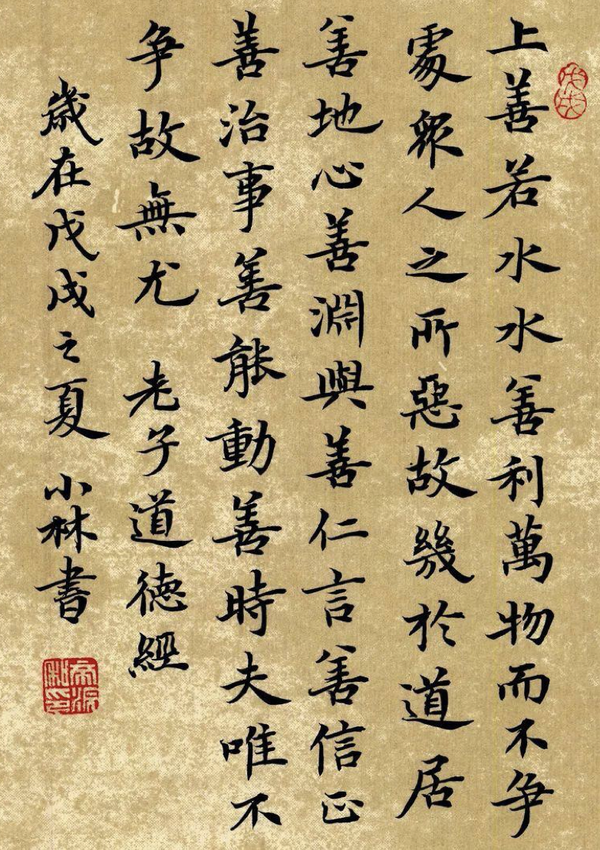 上善若水水善利萬物而不争
處衆人之所惡故幾於道居
善地心善淵與善仁言善信正
善治事善能動善時夫唯不
争故無尤 老子道德經
歲在戊戌之夏 小林書
戊戌